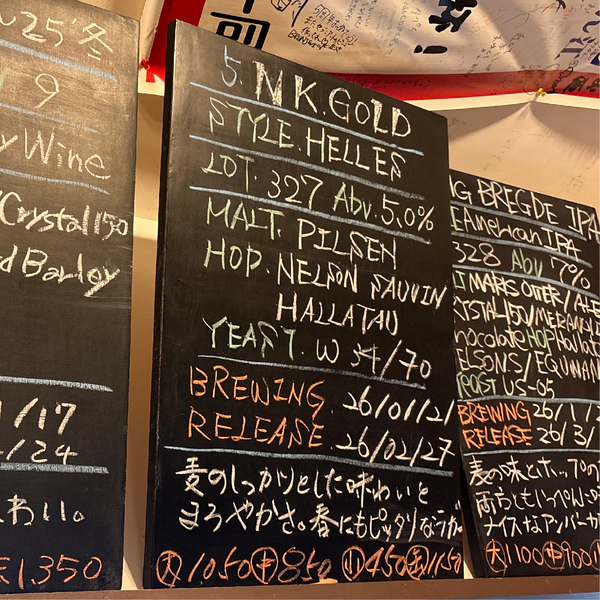 25'冬
9
Wine
Crystal 150
Barley
1/17
/24
わい。
1350
5. NK.GOLD
STYLE. HELLES
LOT. 327 Abv. 5.0%
MALT. PILSEN
HOP. NELSON SAUVIN
HALLATAU
YEAST. W 34/70
BREWING. 26/01/21
RELEASE. 26/02/27
麦のしっかりとした味わいと
まろやかさ。春にもピッタリなラガ
大1050 中850 小450 缶1150
BREGDE IPA
American IPA
328 Abv 7%
MARIS OTTER/ALE
HOP
/EQUINAN
US-05
BREWING 26/1/2
RELEASE 26/3/
麦の味とホップの
ナイスなアンバーカ
大1100 中900